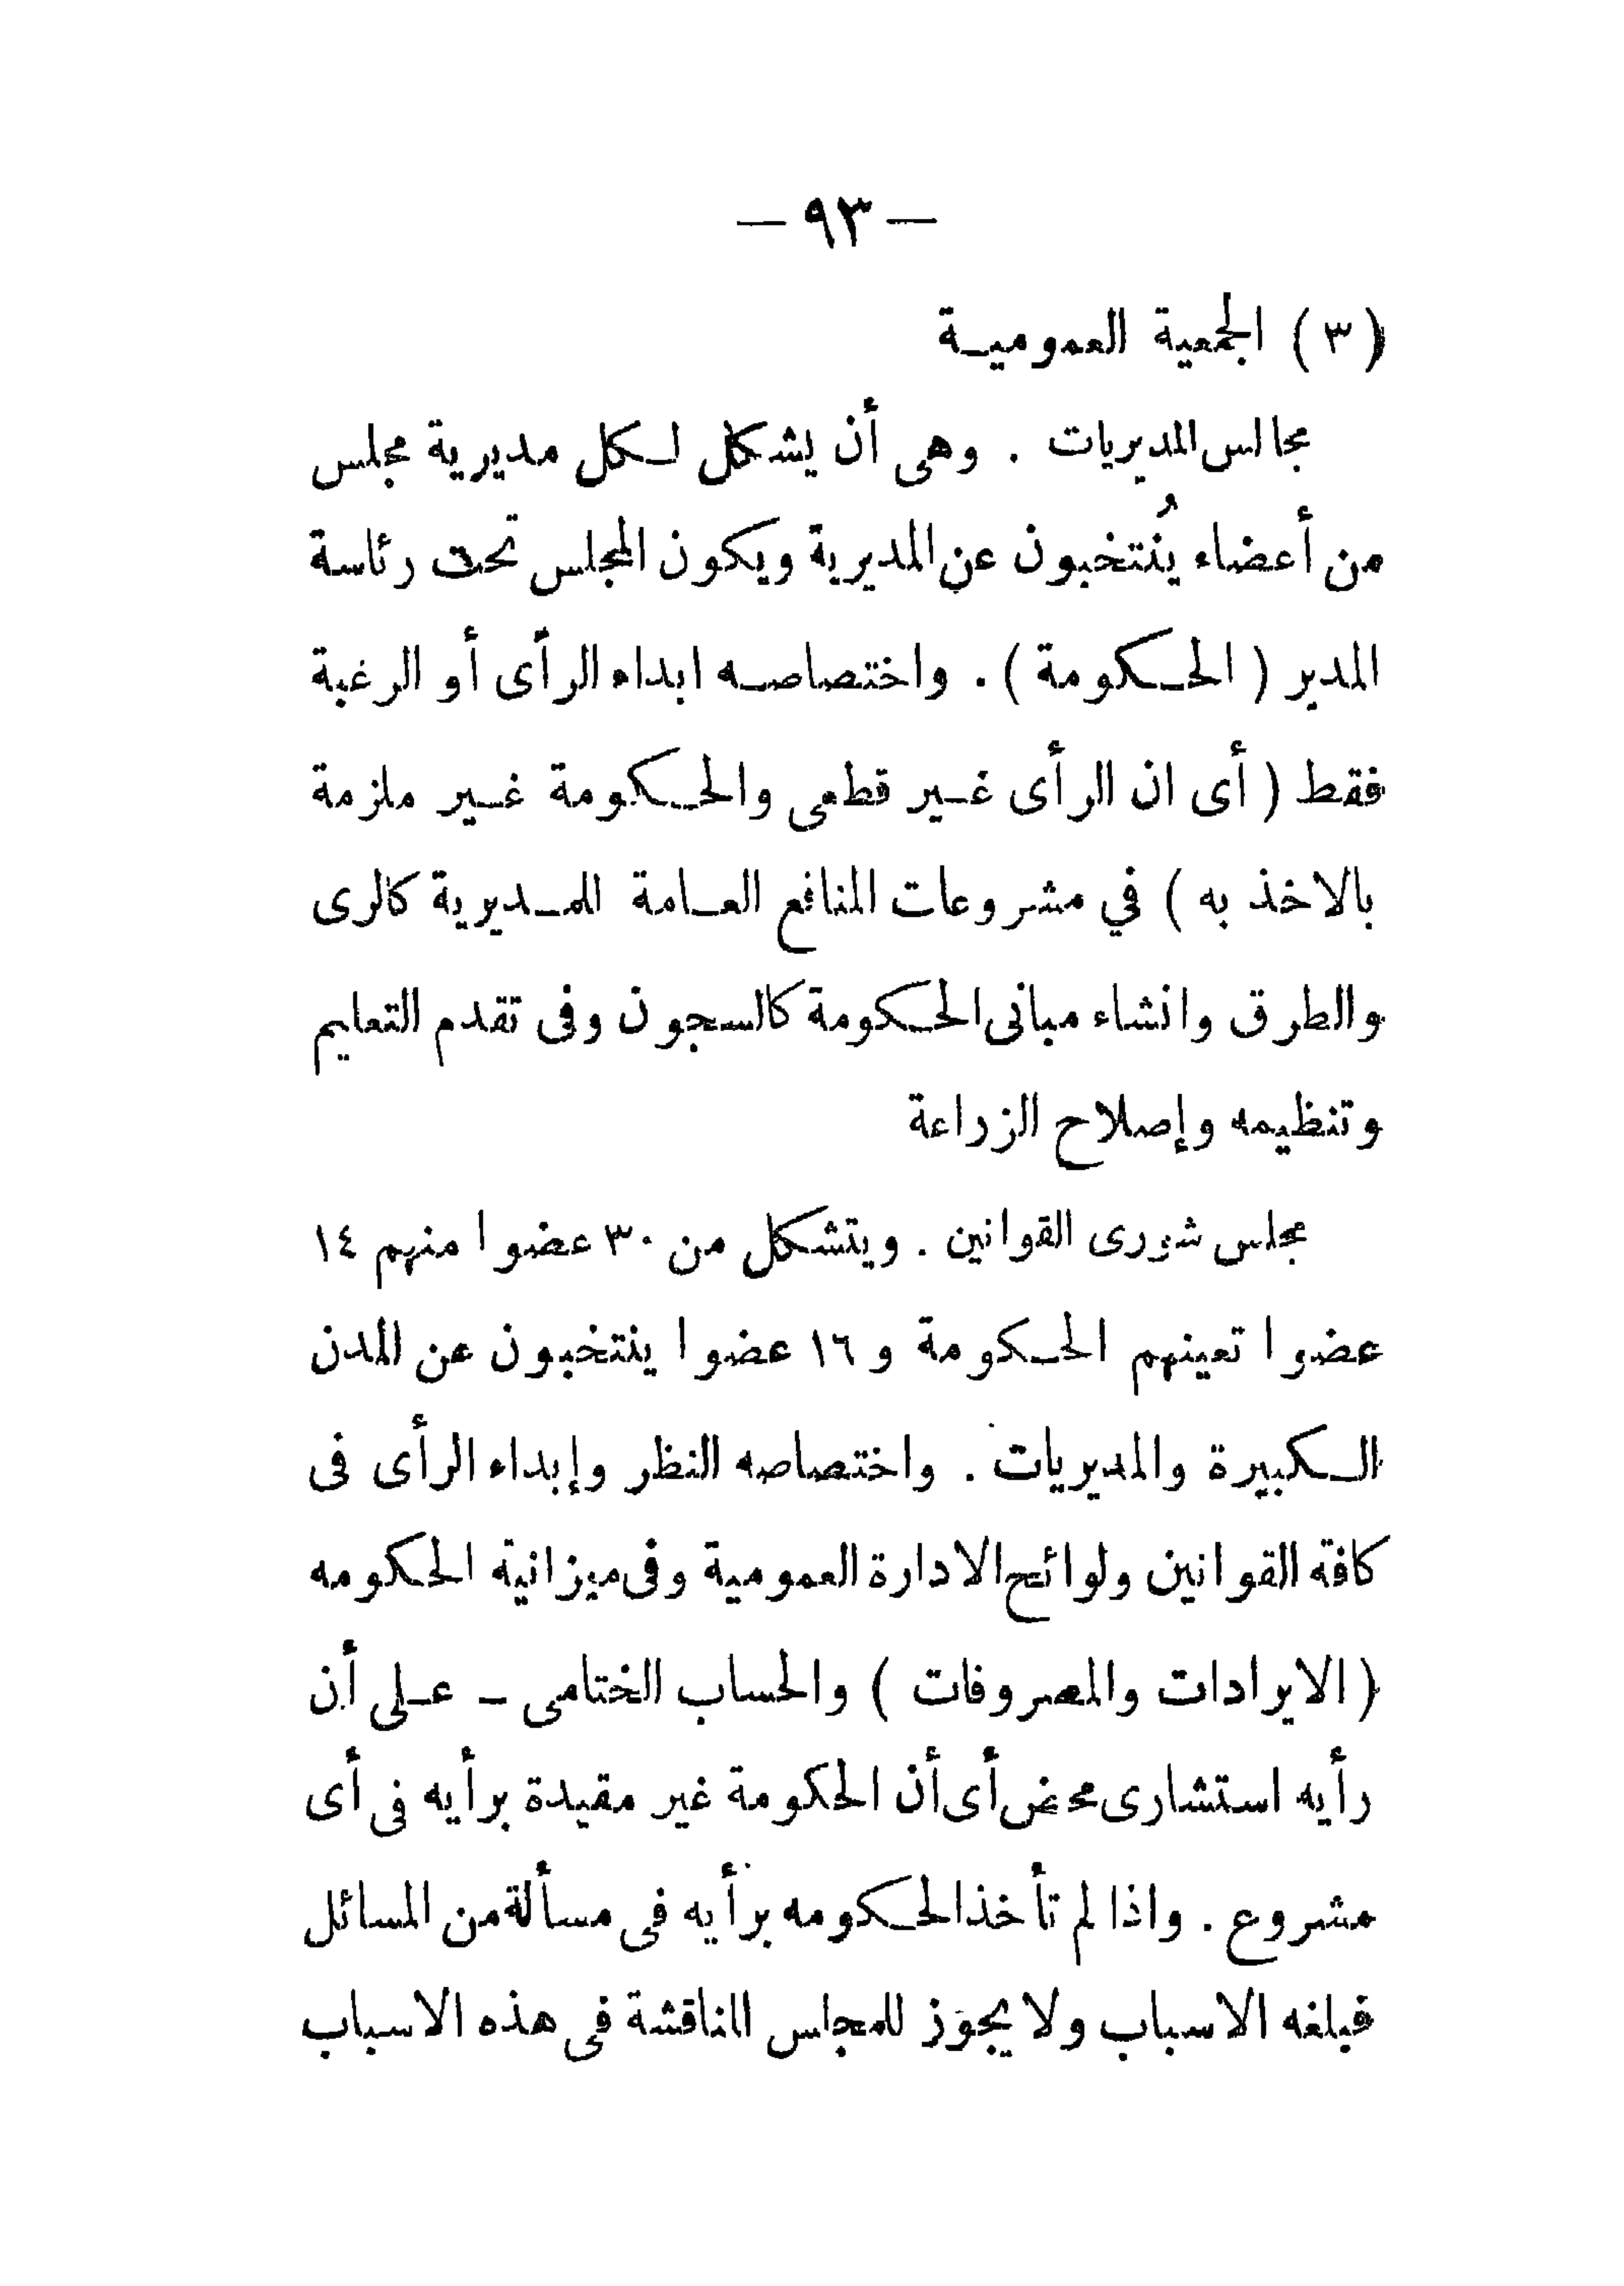 — ٩٣ —
( ٣ ) الجمعية العمومية
مجالس المديريات . وهى أن يشكل لكل مديرية مجلس
من أعضاء يُنتخبون عن المديرية ويكون المجلس تحت رئاسة
المدير ( الحكومة ) . واختصاصه ابداء الرأى أو الرغبة
فقط ( أى ان الرأى غير قطعى والحكومة غير ملزمة
بالاخذ به ) في مشروعات المنافع العامة للمديرية كالرى
والطرق وانشاء مبانى الحكومة كالسجون وفى تقدم التعليم
وتنظيمه وإصلاح الزراعة
مجلس شورى القوانين . ويتشكل من ٣٠ عضوا منهم ١٤
عضوا تعينهم الحكومة و ١٦ عضوا ينتخبون عن المدن
الكبيرة والمديريات . واختصاصه النظر وإبداء الرأى فى
كافة القوانين ولوائح الادارة العمومية وفى ميزانية الحكومه
( الايرادات والمصروفات ) والحساب الختامى – على أن
رأيه استشارى محض أى أن الحكومة غير مقيدة برأيه فى أى
مشروع . واذا لم تأخذ الحكومه برأيه فى مسألة من المسائل
فبلغه الاسباب ولا يجوز للمجلس المناقشة فى هذه الاسباب